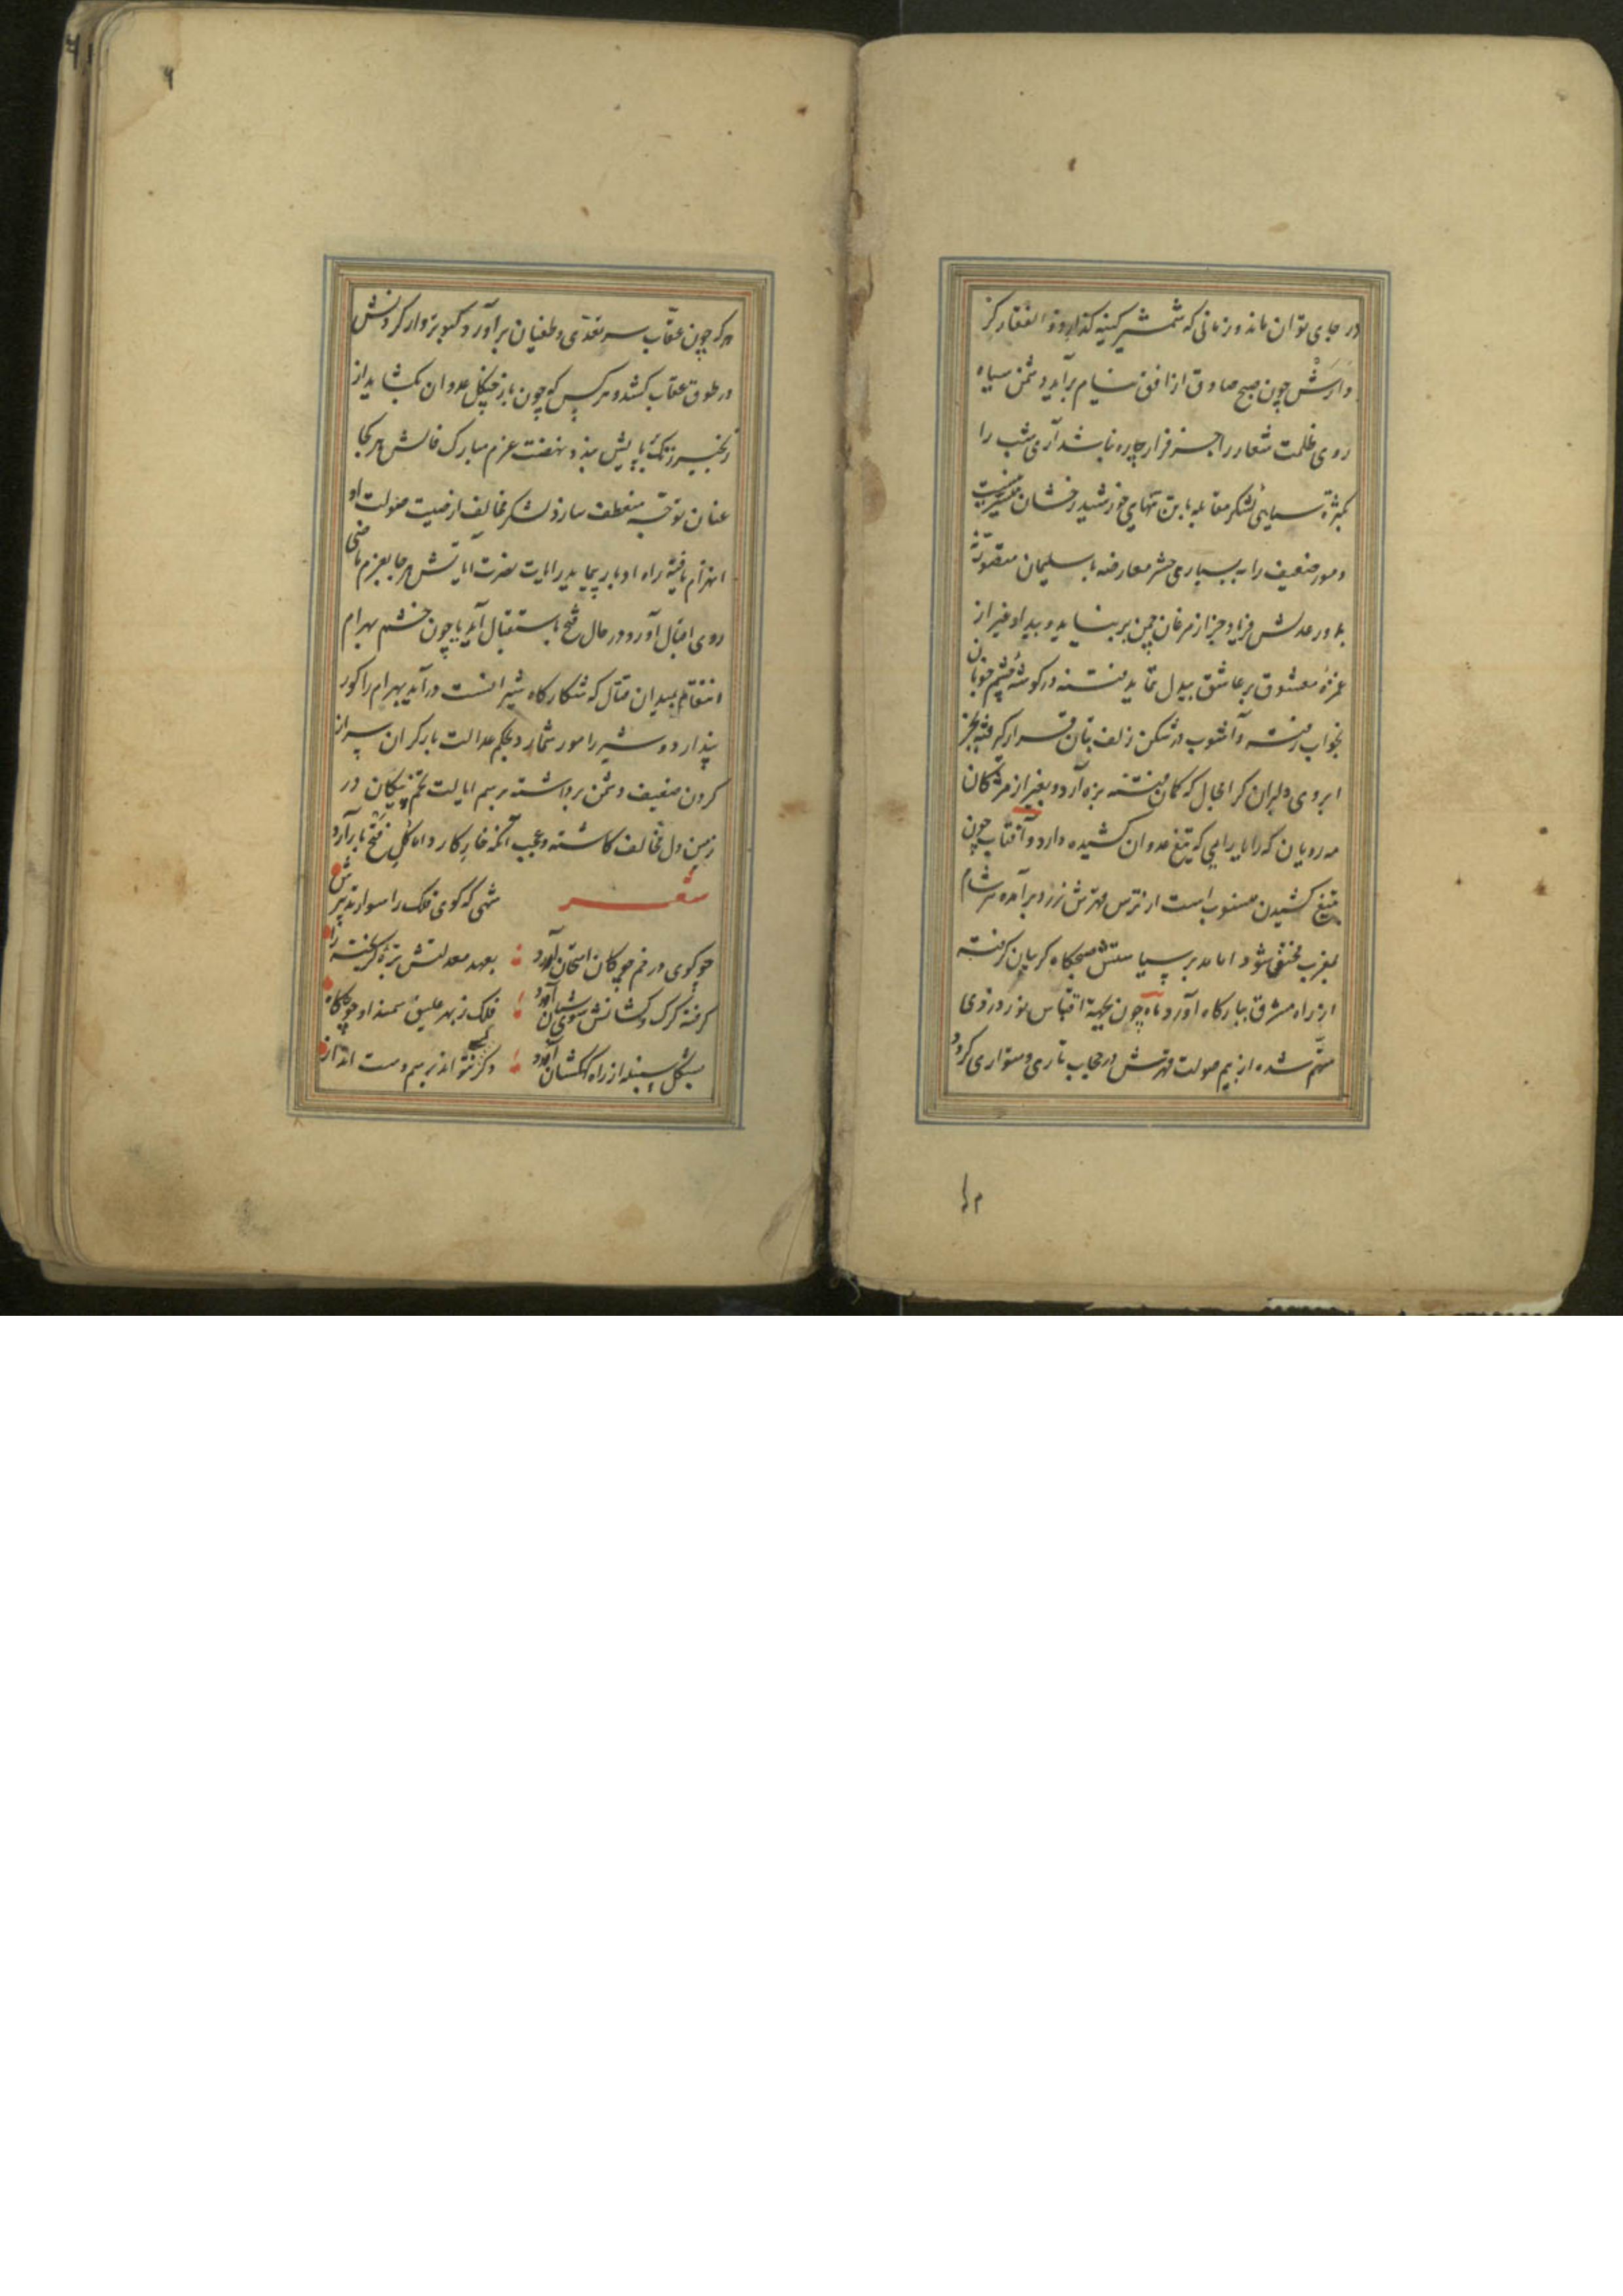 در جای توان ماند و زمانی که شمشیر کینه گذار ذوالفقار کر
دارش چون صبح صادق از افق نیام برآید دشمن سیاه
روی ظلمت شعار را جز فرار چاره نباشد آری شب را
بکثرة سیاهی لشکر مقابله با تن تنهای خورشید رخشان میسر نیست
و مور ضعیف را به بسیاری حشر معارضه با سلیمان متصور نه
در عدلش فریاد جز از مرغان چمن برنیاید و بیداد غیر از
غمزهٔ معشوق بر عاشق بیدل نماید فتنه در گوشهٔ چشم خوبان
بخواب رفته و آشوب در شکن زلف بتان قرار گرفته بجز
ابروی دلبران کرا مجال که کمان فتنه بزه آرد و بغیر از مژگان
مه رویان که را یارایی که تیغ عدوان کشیده دارد و آفتاب چون
بتیغ کشیدن منسوب است از ترس قهرش زرد برآمده هر شام
بمغرب مختفی شود اما مدبر سیاستش صبحگاه گریبان گرفته
از راه مشرق ببارگاه آورد ماه چون بجهة اقتباس نور دزدی
متهم شده از بیم صولت قهرش در حجاب تاری متواری گردد
هر که چون عقاب سر تعدی و طغیان برآورد کبوتروار گردنش
در طوق عقاب کشد و هر کس که چون باز چنگل عدوان بگشاید از
زنجیر زنگ بپایش نهد و نهضت عزم مبارک فالش هر کجا
عنان توجه منعطف سازد لشکر مخالف از صیت صولت او
انهزام یافته راه ادبار پیماید رایات نصرت آیاتش هر جا بعزم ماضی
روی اقبال آورد در حال فتح باستقبال آید یا چون خشم بهرام
انتقام بمیدان قتال که شکارگاه شیرانست درآید بهرام را گور
پندارد و شیر را مور شمارد بحکم عدالت بار گران سر از
گردن ضعیف دشمن برداشته برسم ایالت تخم پیکان در
زمین دل مخالف کاشته و عجب آنکه خار کارد اما گل فتح بار آرد
شعر
شهی که گوی فلک را سوار تدبیرش
چو گوی در خم چوگان امتحان آورد
بعهد معدلتش بزهٔ گریخته را
گرفته گرگ و کشانش سوی شبان آورد
فلک ز بهر علیق سمند او جو و کاه
بشکل سنبله از راه کهکشان آورد